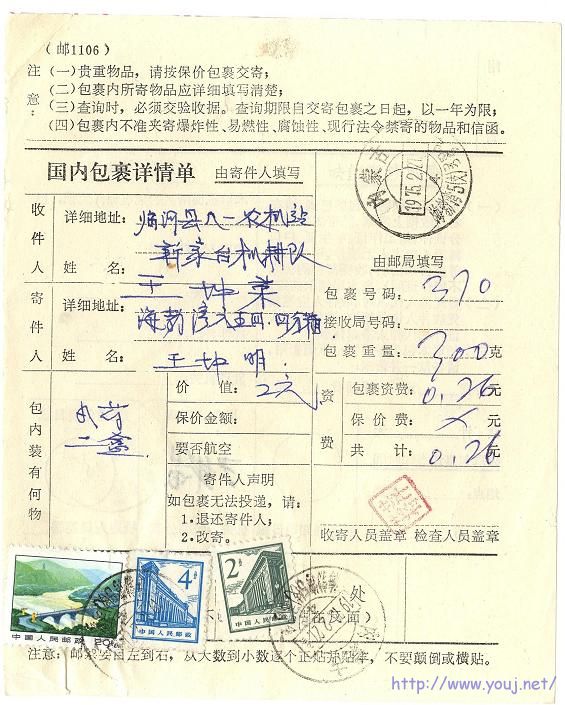 （邮1106）
注意：
（一）贵重物品，请按保价包裹交寄；
（二）包裹内所寄物品应详细填写清楚；
（三）查询时，必须交验收据。查询期限自交寄包裹之日起，以一年为限；
（四）包裹内不准夹寄爆炸性、易燃性、腐蚀性、现行法令禁寄的物品和信函。
国内包裹详情单 由寄件人填写
内蒙古
收件人
详细地址：临河县八一农机站
新家台机耕队
姓名：王坤荣
由邮局填写
包裹号码：370
接收局号码：
包裹重量：300克
寄件人
详细地址：
姓名：王坤明
包内装有何物
二盒
价值：2元
保价金额：
要否航空
资费
包裹资费：0.26元
保价费：×元
共计：0.26元
寄件人声明
如包裹无法投递，请：
1.退还寄件人；
2.改寄。
收寄人员盖章 检查人员盖章
中国人民邮政 20分
4分
中国人民邮政
2分
中国人民邮政
处
注意：邮票要由左到右，从大数到小数逐个正贴并贴牢，不要颠倒或横贴。
http://www.youj.net/